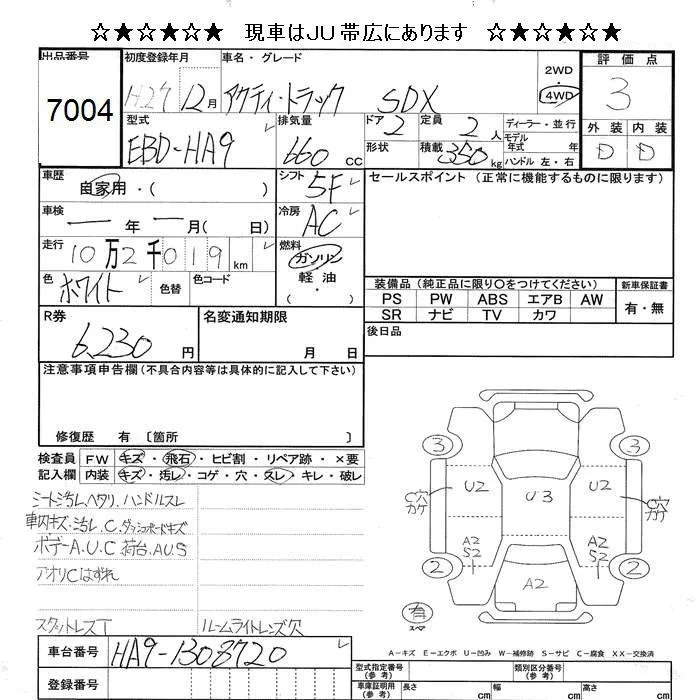 ☆★☆★☆★ 現車はJU帯広にあります ☆★☆★☆★
出品番号 7004
初度登録年月 H.27 12月
車名・グレード アクティ・トラック SDX
2WD 4WD
評価点 3
外装 D 内装 D
型式 EBD-HA9
排気量 660 CC
ドア 2 形状
定員 2 人
積載 350 kg
ディーラー・並行
モデル年式 年
ハンドル 左・右
車歴 自家用・( )
シフト 5F
セールスポイント(正常に機能するものに限ります)
車検 ー 年 ー 月( 日)
冷房 AC
走行 10万2千019 km
燃料 ガソリン 軽油 ( )
色 ホワイト 色替 色コード
装備品(純正品に限り〇をつけてください) 新車保証書
PS PW ABS エアB AW 有・無
SR ナビ TV カワ
R券 6,230 円
名変通知期限 月 日
後日品
注意事項申告欄(不具合内容等は具体的に記入して下さい)
修復歴 有 〔箇所 〕
検査員記入欄
FW キズ・飛石・ヒビ割・リペア跡・×要
内装 キズ・汚レ・コゲ・穴・スレ・キレ・破レ
シート汚レ、ヘタリ、ハンドルスレ
車内キズ・汚レ、C、ダッシュボードキズ
ボデーA、U、C 荷台、A、U、S
アオリCはずれ
スタットレスT ルームライトレンズ欠
3 3
C穴カケ U2 U3 U2 C穴カケ
A2 S2 A2 S2
2 A2 2
有 スペア
A-キズ E-エクボ U-凹み W-補修跡 S-サビ C-腐食 XX-交換済
車台番号 HA9-1308720
登録番号
型式指定番号(参考) 類別区分番号(参考)
車庫証明用(参考) 長さ cm 幅 cm 高さ cm